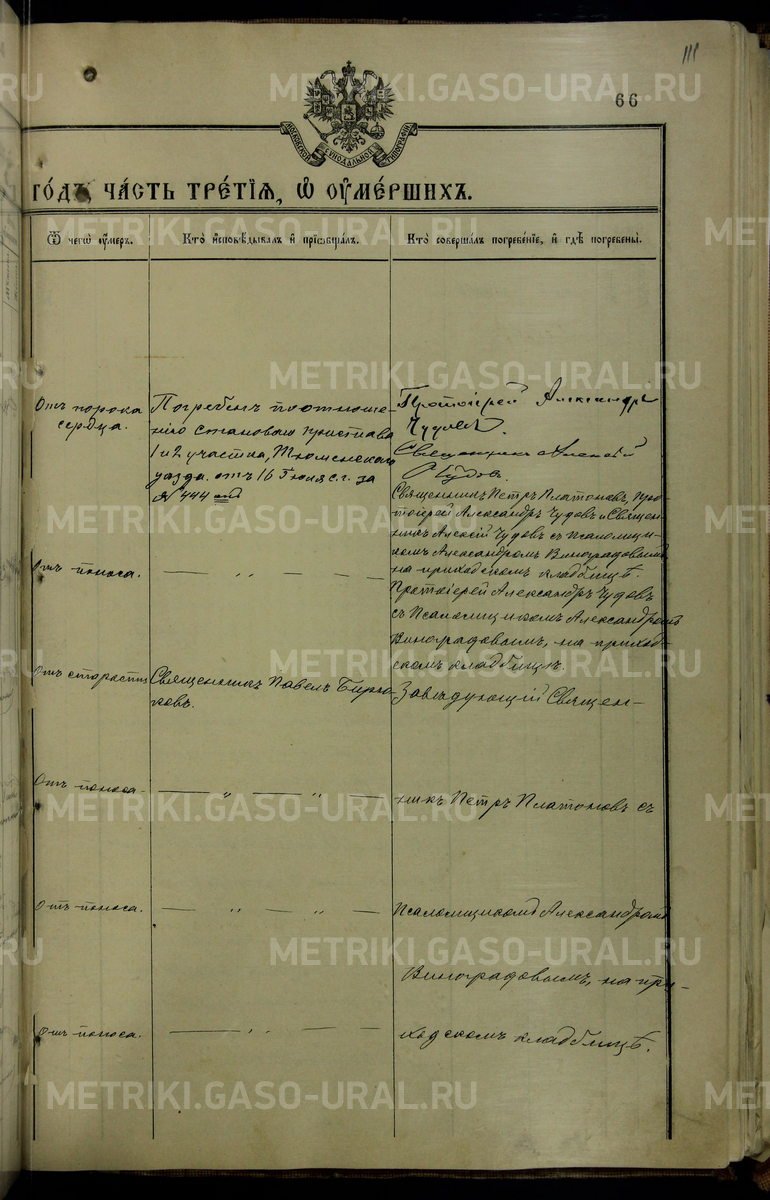 111
66
МОСКОВСКОЙ СѴНОДАЛЬНОЙ ТИПОГРАФІИ
ГО́ДЪ, ЧА́СТЬ ТРЕ́ТІѦ, Ѡ҆ ОУ҆МЕ́РШИХЪ.
Ѿ чегѡ̀ оу҆́меръ.
Кто̀ и҆сповѣ́дывалъ и҆ прїѡбща́лъ.
Кто̀ соверша́лъ погребе́нїе, и҆ гдѣ̀ погребены̀.
Отъ порока
сердца.
Погребенъ по отноше-
нію Становаго Пристава
1 и 2 участка, Тюменскаго
уезда. отъ 16 Іюля с. г. за
№ 444
Протоіерей Александръ
Чудовъ.
Священникъ Алексій
Чудовъ.
Священникъ Петръ Платоновъ, Про-
тоіерей Александръ Чудовъ и Священ-
никъ Алексій Чудовъ съ Псаломщи-
комъ Александромъ Виноградовымъ
на приходскомъ кладбищѣ.
Отъ поноса.
— „ — — —
Протоіерей Александръ Чудовъ
съ Псаломщикомъ Александромъ
Виноградовымъ, на приход-
скомъ кладбищѣ.
Отъ старости
Священникъ Павелъ Бирю-
ковъ.
Завѣдующій Священ-
Отъ поноса.
— „ — „ —
никъ Петръ Платоновъ съ
Отъ поноса.
— „ — „ —
Псаломщикомъ Александромъ
Виноградовымъ, на при-
Отъ поноса.
— „ — —
ходскомъ кладбищѣ.
METRIKI.GASO-URAL.RU